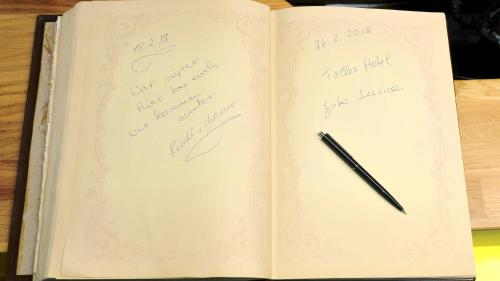 18.2.18
War super
hier bei euch
Wir kommen
wieder
+ Yvonne
26.2.2018
Tolles Hotel
guter Service